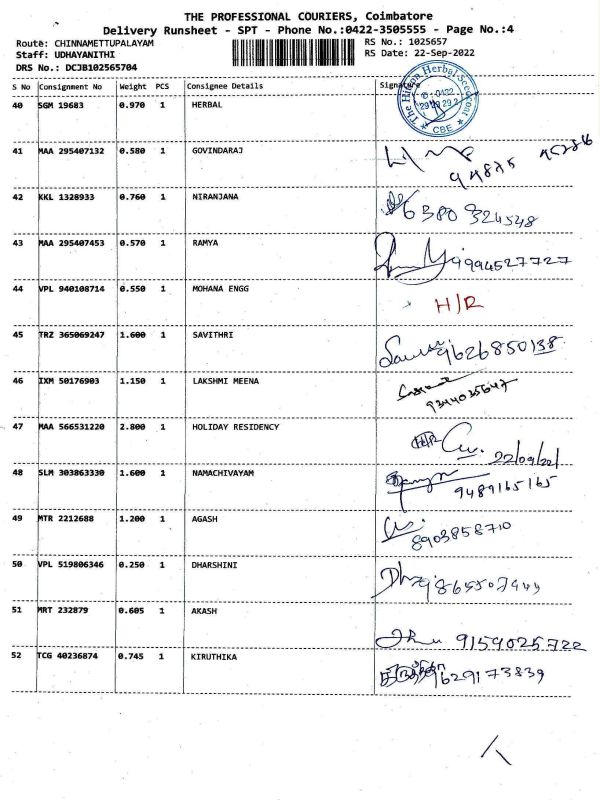 THE PROFESSIONAL COURIERS, Coimbatore
Delivery Runsheet - SPT - Phone No.:0422-3505555 - Page No.:4
Route: CHINNAMETTUPALAYAM RS No.: 1025657
Staff: UDHAYANITHI RS Date: 22-Sep-2022
DRS No.: DCJB102565704
S No Consignment No Weight PCS Consignee Details Signature
40 SGM 19683 0.970 1 HERBAL
CBE
41 MAA 295407132 0.580 1 GOVINDARAJ
42 KKL 1328933 0.760 1 NIRANJANA 6380 324548
43 MAA 295407453 0.570 1 RAMYA 9994527727
44 VPL 940108714 0.550 1 MOHANA ENGG H/R
45 TRZ 365069247 1.600 1 SAVITHRI 9626850138
46 IXM 50176903 1.150 1 LAKSHMI MEENA 9344035647
47 MAA 566531220 2.800 1 HOLIDAY RESIDENCY
48 SLM 303863330 1.600 1 NAMACHIVAYAM 9489165165
49 MTR 2212688 1.200 1 AGASH 8903858710
50 VPL 519806346 0.250 1 DHARSHINI
51 MRT 232879 0.605 1 AKASH 9159025722
52 TCG 40236874 0.745 1 KIRUTHIKA 9629173839